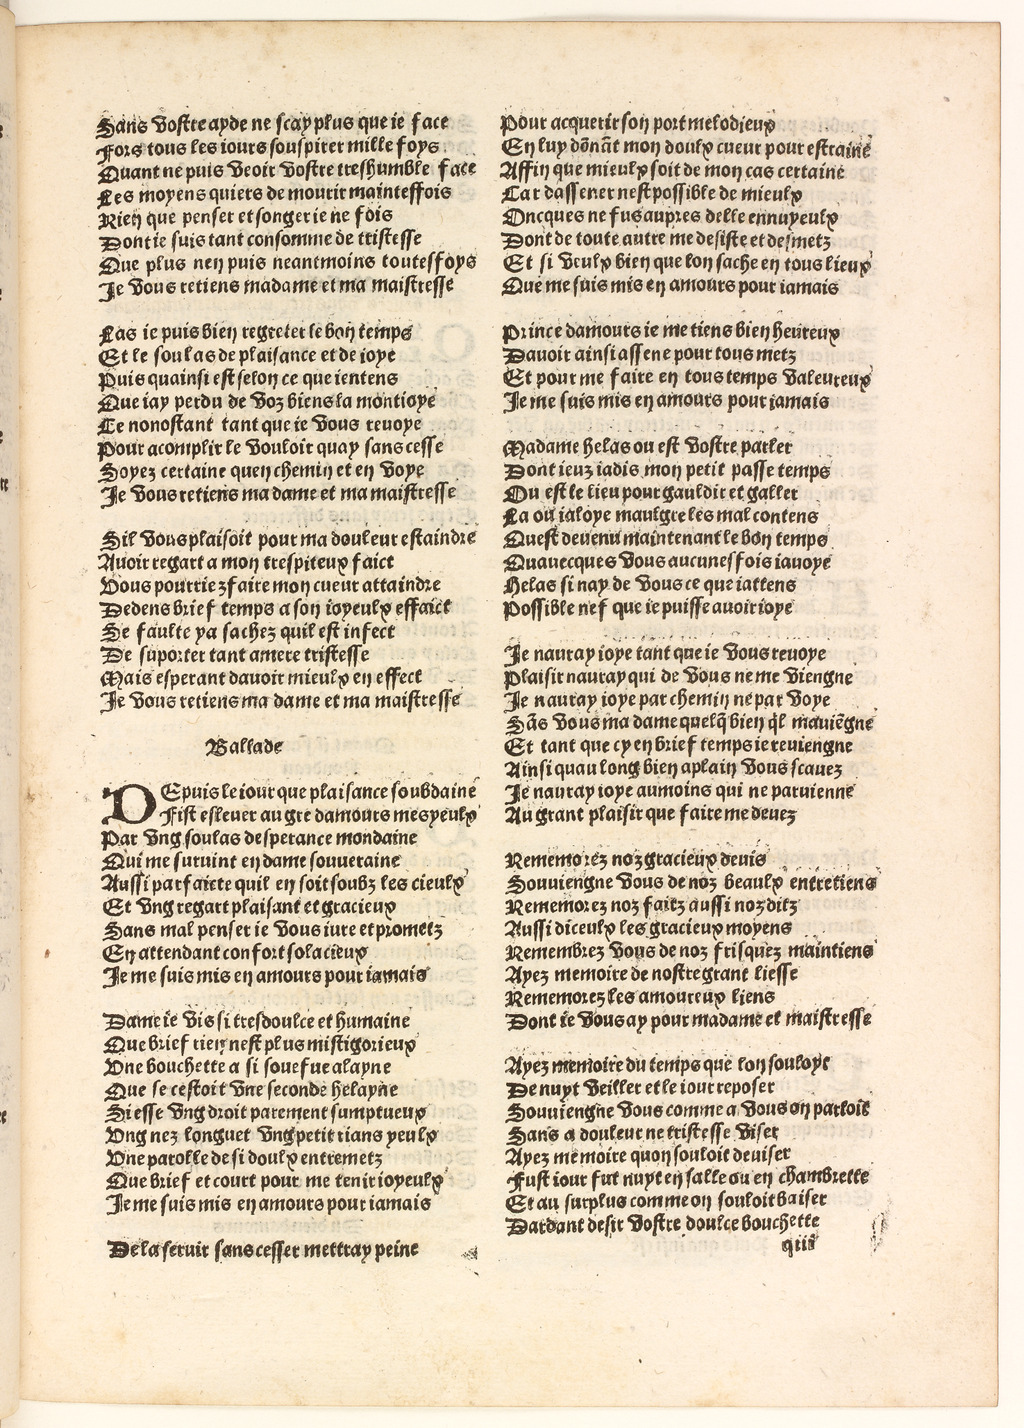 Sans vostre ayde ne scay plus que ie face
Fors tous les iours souspirer mille foys
Quant ne puis veoir vostre treshumble face
Les moyens quiers de mourir mainteffois
Rien que penser et songer ie ne fois
Dont ie suis tant consomme de tristesse
Que plus nen puis neantmoins touteffoys
Je vous retiens madame et ma maistresse

Las ie puis bien regreter le bon temps
Et le soulas de plaisance et de ioye
Puis quainsi est selon ce que ientens
Que iay perdu de voz biens la montioye
Ce nonostant tant que ie vous reuoye
Pour acomplir le vouloir quay sans cesse
Soyez certaine quen chemin et en voye
Je vous retiens ma dame et ma maistresse

Sil vous plaisoit pour ma douleur estaindre
Auoir regart a mon trespiteux faict
Vous pourriez faire mon cueur attaindre
Dedens brief temps a son ioyeulx effaict
Se faulte ya sachez quil est infect
De suporter tant amere tristesse
Mais esperant dauoir mieulx en effect
Je vous retiens ma dame et ma maistresse

Ballade

DEpuis le iour que plaisance soubdaine
Fist esleuer au gre damours mes yeulx
Par vng soulas desperance mondaine
Qui me suruint en dame souueraine
Aussi parfaicte quil en soit soubz les cieulx
Et vng regart plaisant et gracieux
Sans mal penser ie vous iure et prometz
En attendant confort solacieux
Je me suis mis en amours pour iamais

Dame ie vis si tresdoulce et humaine
Que brief rien nest plus mistigorieux
Vne bouchette a si souefue alayne
Que se cestoit vne seconde helayne
Si esse vng droit parement sumptueux
Vng nez longuet vng petit rians yeulx
Vne parolle de si doulx entremetz
Que brief et court pour me tenir ioyeulx
Je me suis mis en amours pour iamais

De la seruir sans cesser mettray peine
Pour acquerir son port melodieux
En luy dōnāt mon doulx cueur pour estraine
Affin que mieulx soit de mon cas certaine
Car dassener nest possible de mieulx
Oncques ne fus aupres delle ennuyeulx
Dont de toute autre me desiste et desmetz
Et si veulx bien que lon sache en tous lieux
Que me suis mis en amours pour iamais

Prince damours ie me tiens bien heureux
Dauoir ainsi assene pour tous metz
Et pour me faire en tous temps valeureux
Je me suis mis en amours pour iamais

Madame helas ou est vostre parler
Dont ieuz iadis mon petit passe temps
Ou est le lieu pour gauldir et galler
La ou ialoye maulgre les mal contens
Quest deuenu maintenant le bon temps
Quauecques vous aucunesfois iauoye
Helas si nay de vous ce que iattens
Possible nef que ie puisse auoir ioye

Je nauray ioye tant que ie vous reuoye
Plaisir nauray qui de vous ne me viengne
Je nauray ioye par chemin ne par voye
Sās vous ma dame quelq̄ bien q̄l mauiēgne
Et tant que cy en brief temps ie reuiengne
Ainsi quau long bien a plain vous scauez
Je nauray ioye aumoins qui ne paruienne
Au grant plaisir que faire me deuez

Rememorez noz gracieux deuis
Souuiengne vous de noz beaulx entretiens
Rememorez noz faitz aussi noz ditz
Aussi diceulx les gracieux moyens
Remembrez vous de noz frisquez maintiens
Ayez memoire de nostre grant liesse
Rememorez les amoureux liens
Dont ie vous ay pour madame et maistresse

Ayez memoire du temps que lon souloyt
De nuyt veiller et le iour reposer
Souuiengne vous comme a vous on parloit
Sans a douleur ne tristesse viser
Ayez memoire quon souloit deuiser
Fust iour fut nuyt en salle ou en chambrette
Et au surplus comme on souloit baiser
Dardant desir vostre doulce bouchette
qiii